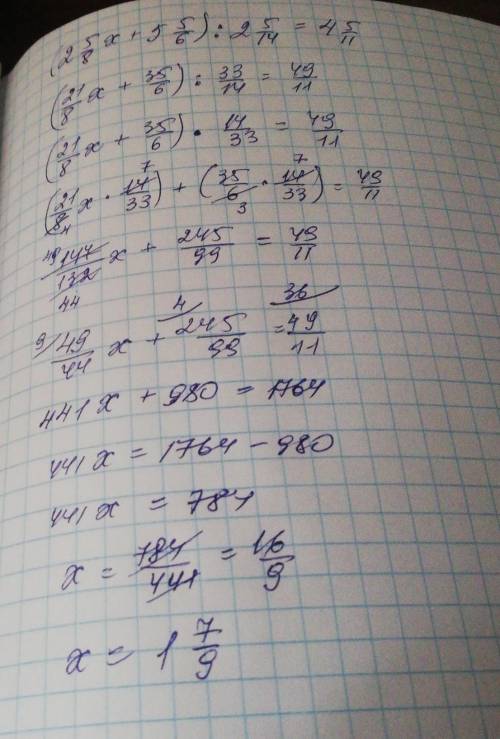 (2 5/8 x + 5 5/6) : 2 5/14 = 4 5/11
(21/8 x + 35/6) : 33/14 = 49/11
(21/8 x + 35/6) · 14/33 = 49/11
(21/8 4 x · 14 7/33) + (35/6 3 · 14 7/33) = 49/11
49 147/132 44 x + 245/99 = 49/11
9/ 49/44 x + 4/ 245/99 = 36/ 49/11
441x + 980 = 1764
441x = 1764 - 980
441x = 784
x = 784/441 = 16/9
x = 1 7/9